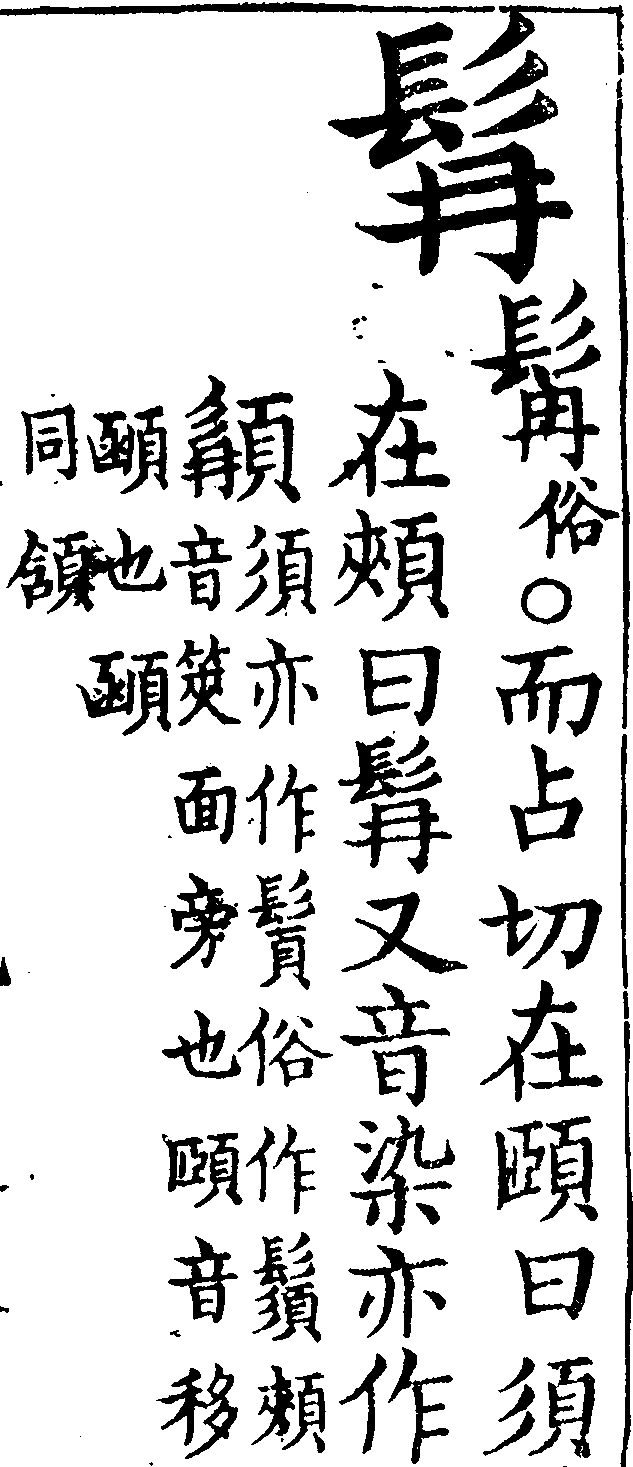 髥髯俗○而占切在頤曰須
在頰曰髥又音染亦作
𩓾須亦作䰅俗作鬚頰
音筴面旁也頤音移
顄也顄
同頷